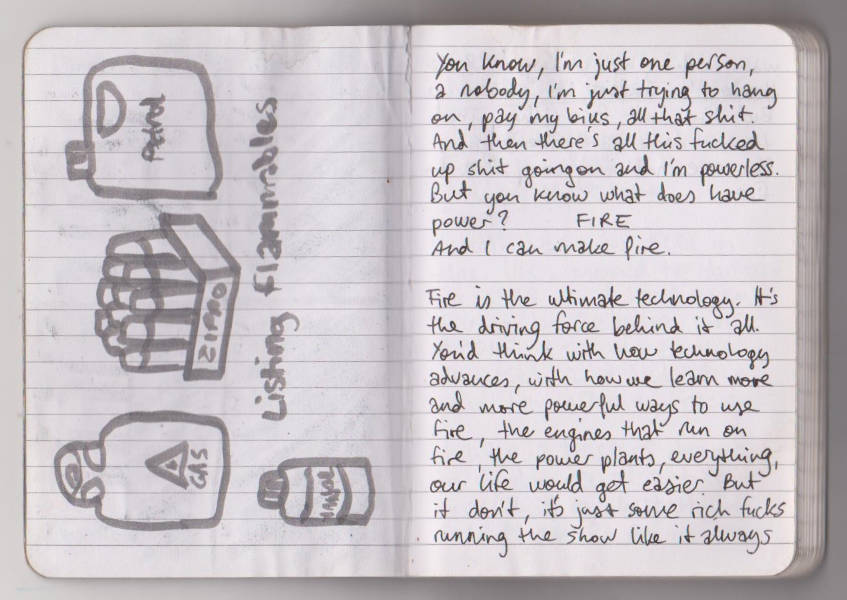 Listing flammables
Petrol
ZIPPO
GAS
You know, I'm just one person,
a nobody, I'm just trying to hang
on, pay my bills, all that shit.
And then there's all this fucked
up shit going on and I'm powerless.
But you know what does have
power? FIRE
And I can make fire.
Fire is the ultimate technology. It's
the driving force behind it all.
You'd think with how technology
advances, with how we learn more
and more powerful ways to use
fire, the engines that run on
fire, the power plants, everything,
our life would get easier. But
it don't, it's just some rich fucks
running the show like it always